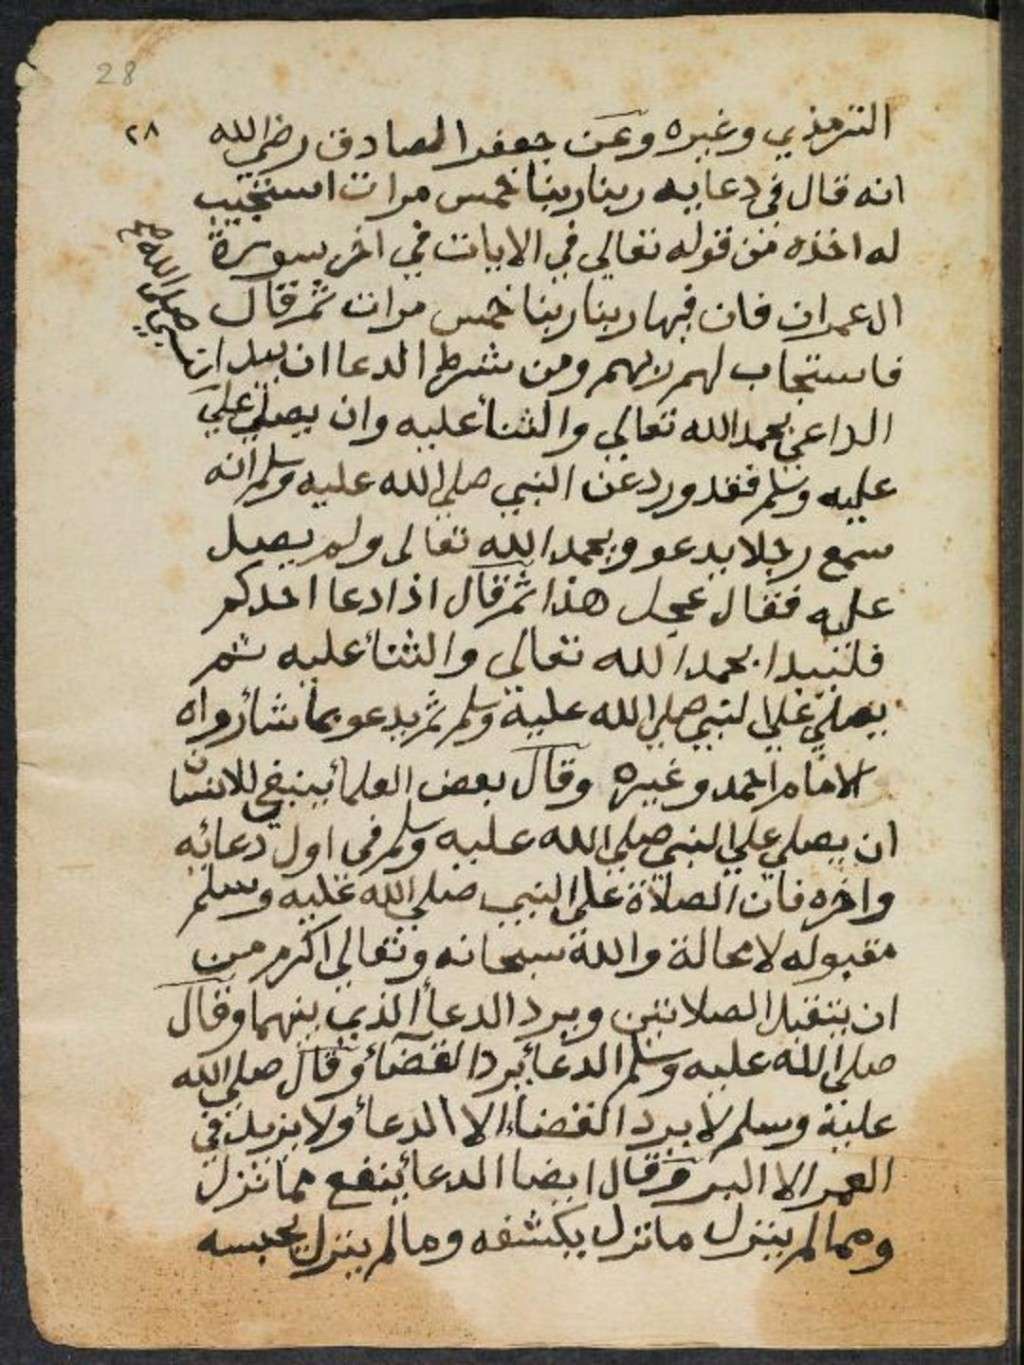 28
٢٨
الترمذي وغيره وعن جعفر الصادق رضي الله
انه قال في دعايه ربنا ربنا خمس مرات استجيب
له اخذه من قوله تعالي في الايات في اخر سورة
ال عمران فان فيها ربنا ربنا خمس مرات ثم قال
فاستجاب لهم ربهم ومن شرط الدعا ان يبدا
الداعي بحمد الله تعالي والثنأ عليه وان يصلي علي
النبي صلي الله
عليه وسلم فقد ورد عن النبي صلي الله عليه وسلم انه
سمع رجلا يدعو ويحمد الله تعالى ولم يصل
عليه فقال عجل هذا ثم قال اذا دعا احدكم
فليبدا بحمد الله تعالي والثنأ عليه ثم
يصلي علي النبي صلي الله علية وسلم ثم يدعو بما شأ رواه
الامام احمد وغيره وقال بعض العلمأ ينبغي للانسان
ان يصلي علي النبي صلي الله عليه وسلم في اول دعائه
واخره فان الصلاة على النبي صلي الله عليه وسلم
مقبوله لا محالة والله سبحانه وتعالي اكرم من
ان يتقبل الصلاتين ويرد الدعأ الذي بينهما وقال
صلي الله عليه وسلم الدعأ يرد القضأ وقال صلي الله
علية وسلم لا يرد القضاء الا الدعأ ولا يزيد في
العمر الا البر وقال ايضا الدعأ ينفع مما نزل
ومما لم ينزل ما نزل يكشفه وما لم ينزل يحبسه